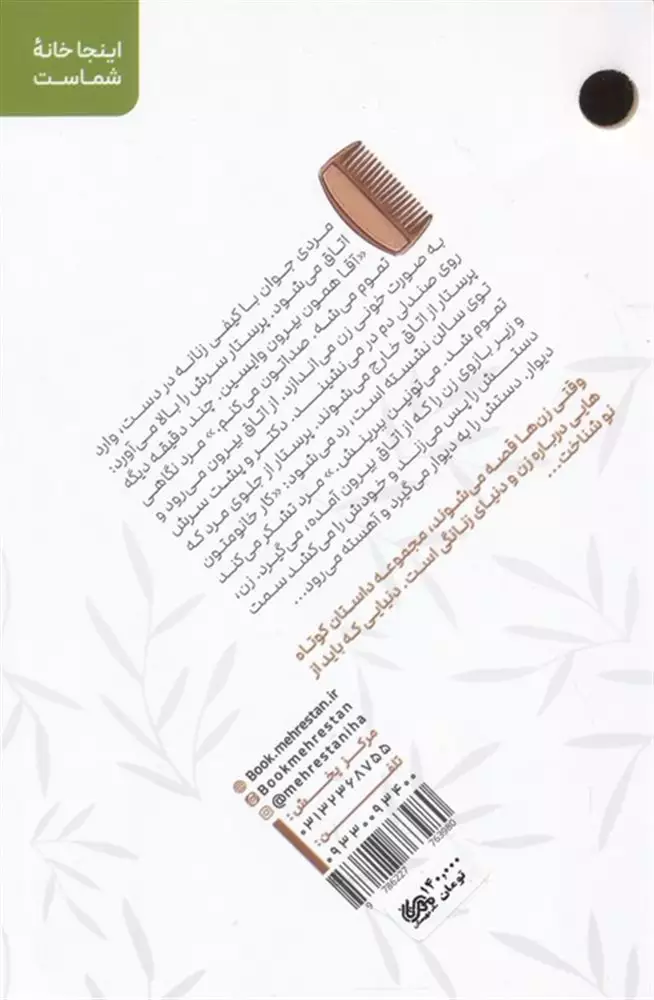 اینجا خانهٔ
شماست
مردی جوان با کیفی زنانه در دست، وارد
اتاق می‌شود. پرستار سرش را بالا می‌آورد:
«آقا همون بیرون وایسین. چند دقیقه دیگه
تموم می‌شه. صداتون می‌کنم.» مرد نگاهی
به صورت خونی زن می‌اندازد. از اتاق بیرون می‌رود و
روی صندلی دم در می‌نشیند. دکتر و پشت سرش
پرستار از اتاق خارج می‌شوند. پرستار از جلوی مرد که
توی سالن نشسته است، رد می‌شود: «کار خانومتون
تموم شد. می‌تونین ببرینش.» مرد تشکر می‌کند
و زیر بازوی زن را که از اتاق بیرون آمده، می‌گیرد. زن،
دستش را پس می‌زند و خودش را می‌کشد سمت
دیوار. دستش را به دیوار می‌گیرد و آهسته می‌رود...
وقتی زن‌ها قصه می‌شوند، مجموعه داستان کوتاه
هایی درباره زن و دنیای زنانگی است. دنیایی که باید از
نو شناخت...
Book.mehrestan.ir
Bookmehrestan
@mehrestaniha
مرکز پخش:
۰۳۱۳۲۳۶۸۷۵۵
تلفن:
۰۹۳۳۰۰۹۳۴۰۰
9 786227 763980
۱۴۰,۰۰۰
تومان